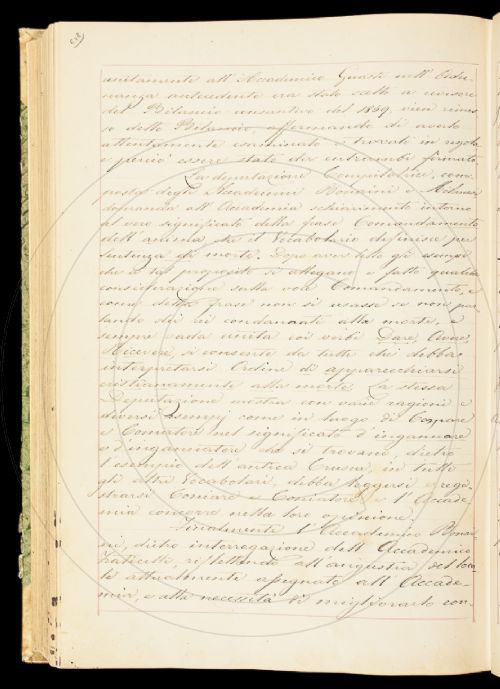 unitamente all'Accademico Guasti nell'Adu-
nanza antecedente era stato scelto a revisore
del Bilancio consuntivo del 1859 vien rimes-
so detto Bilancio, affermando di averlo
attentamente esaminato e trovato in regola
e perciò essere stato da entrambi firmato.
La deputazione Compilatrice, com-
posta degli Accademici Bonaini e Milanesi
domanda all'Accademia schiarimenti intorno
al vero significato della frase Comandamento
dell'anima che il Vocabolario definisce per
Sentenza di morte. Dopo aver letto gli esempi
che a tal proposito si allegano e fatte qualche
considerazione sulla voce Comandamento, e
come detta frase non si usasse se non par-
lando dei rei condannati alla morte, e
sempre vada unita coi verbi Dare, Avere,
Ricevere, si consente da tutti che debba
interpretarsi Ordine di apparecchiarsi
cristianamente alla morte. La stessa
Deputazione mostra con varie ragioni e
diversi esempj come in luogo di
e Comiatore nel significato d'ingannare
e d'ingannatore che si trovano, dietro
l'esempio dell'antica Crusca, in tutti
gli altri Vocabolari, debba leggersi e regi-
strarsi Coniare e Coniatore e l'Accade-
mia concorre nella loro opinione.
Finalmente l'Accademico Bonai-
ni, dietro interrogazione dell'Accademico
riflettendo all'angustia del loca-
le attualmente assegnato all'Accade-
mia, e alla necessità di migliorarlo con-